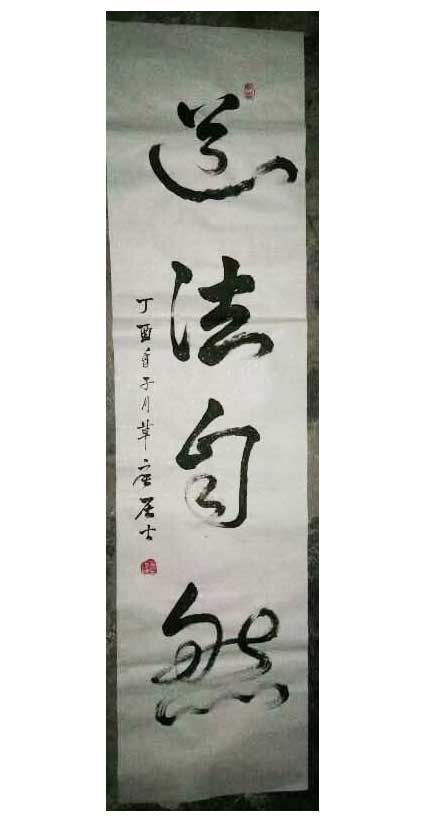 道法自然
丁酉年子月草庐居士